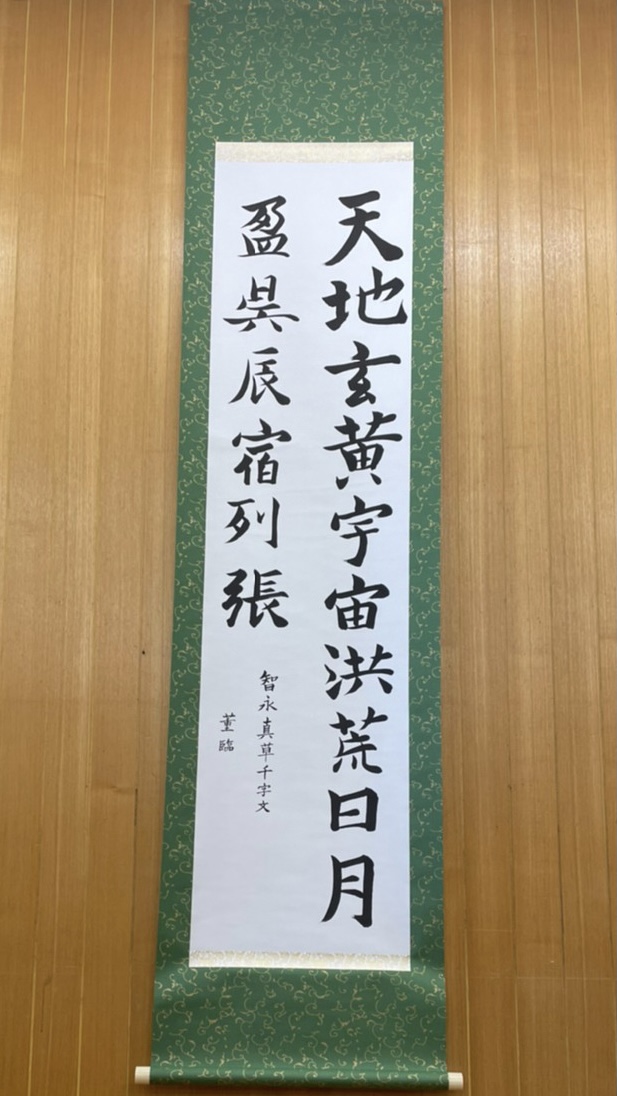 天地玄黄宇宙洪荒日月
盈昃辰宿列張
智永真草千字文
董臨